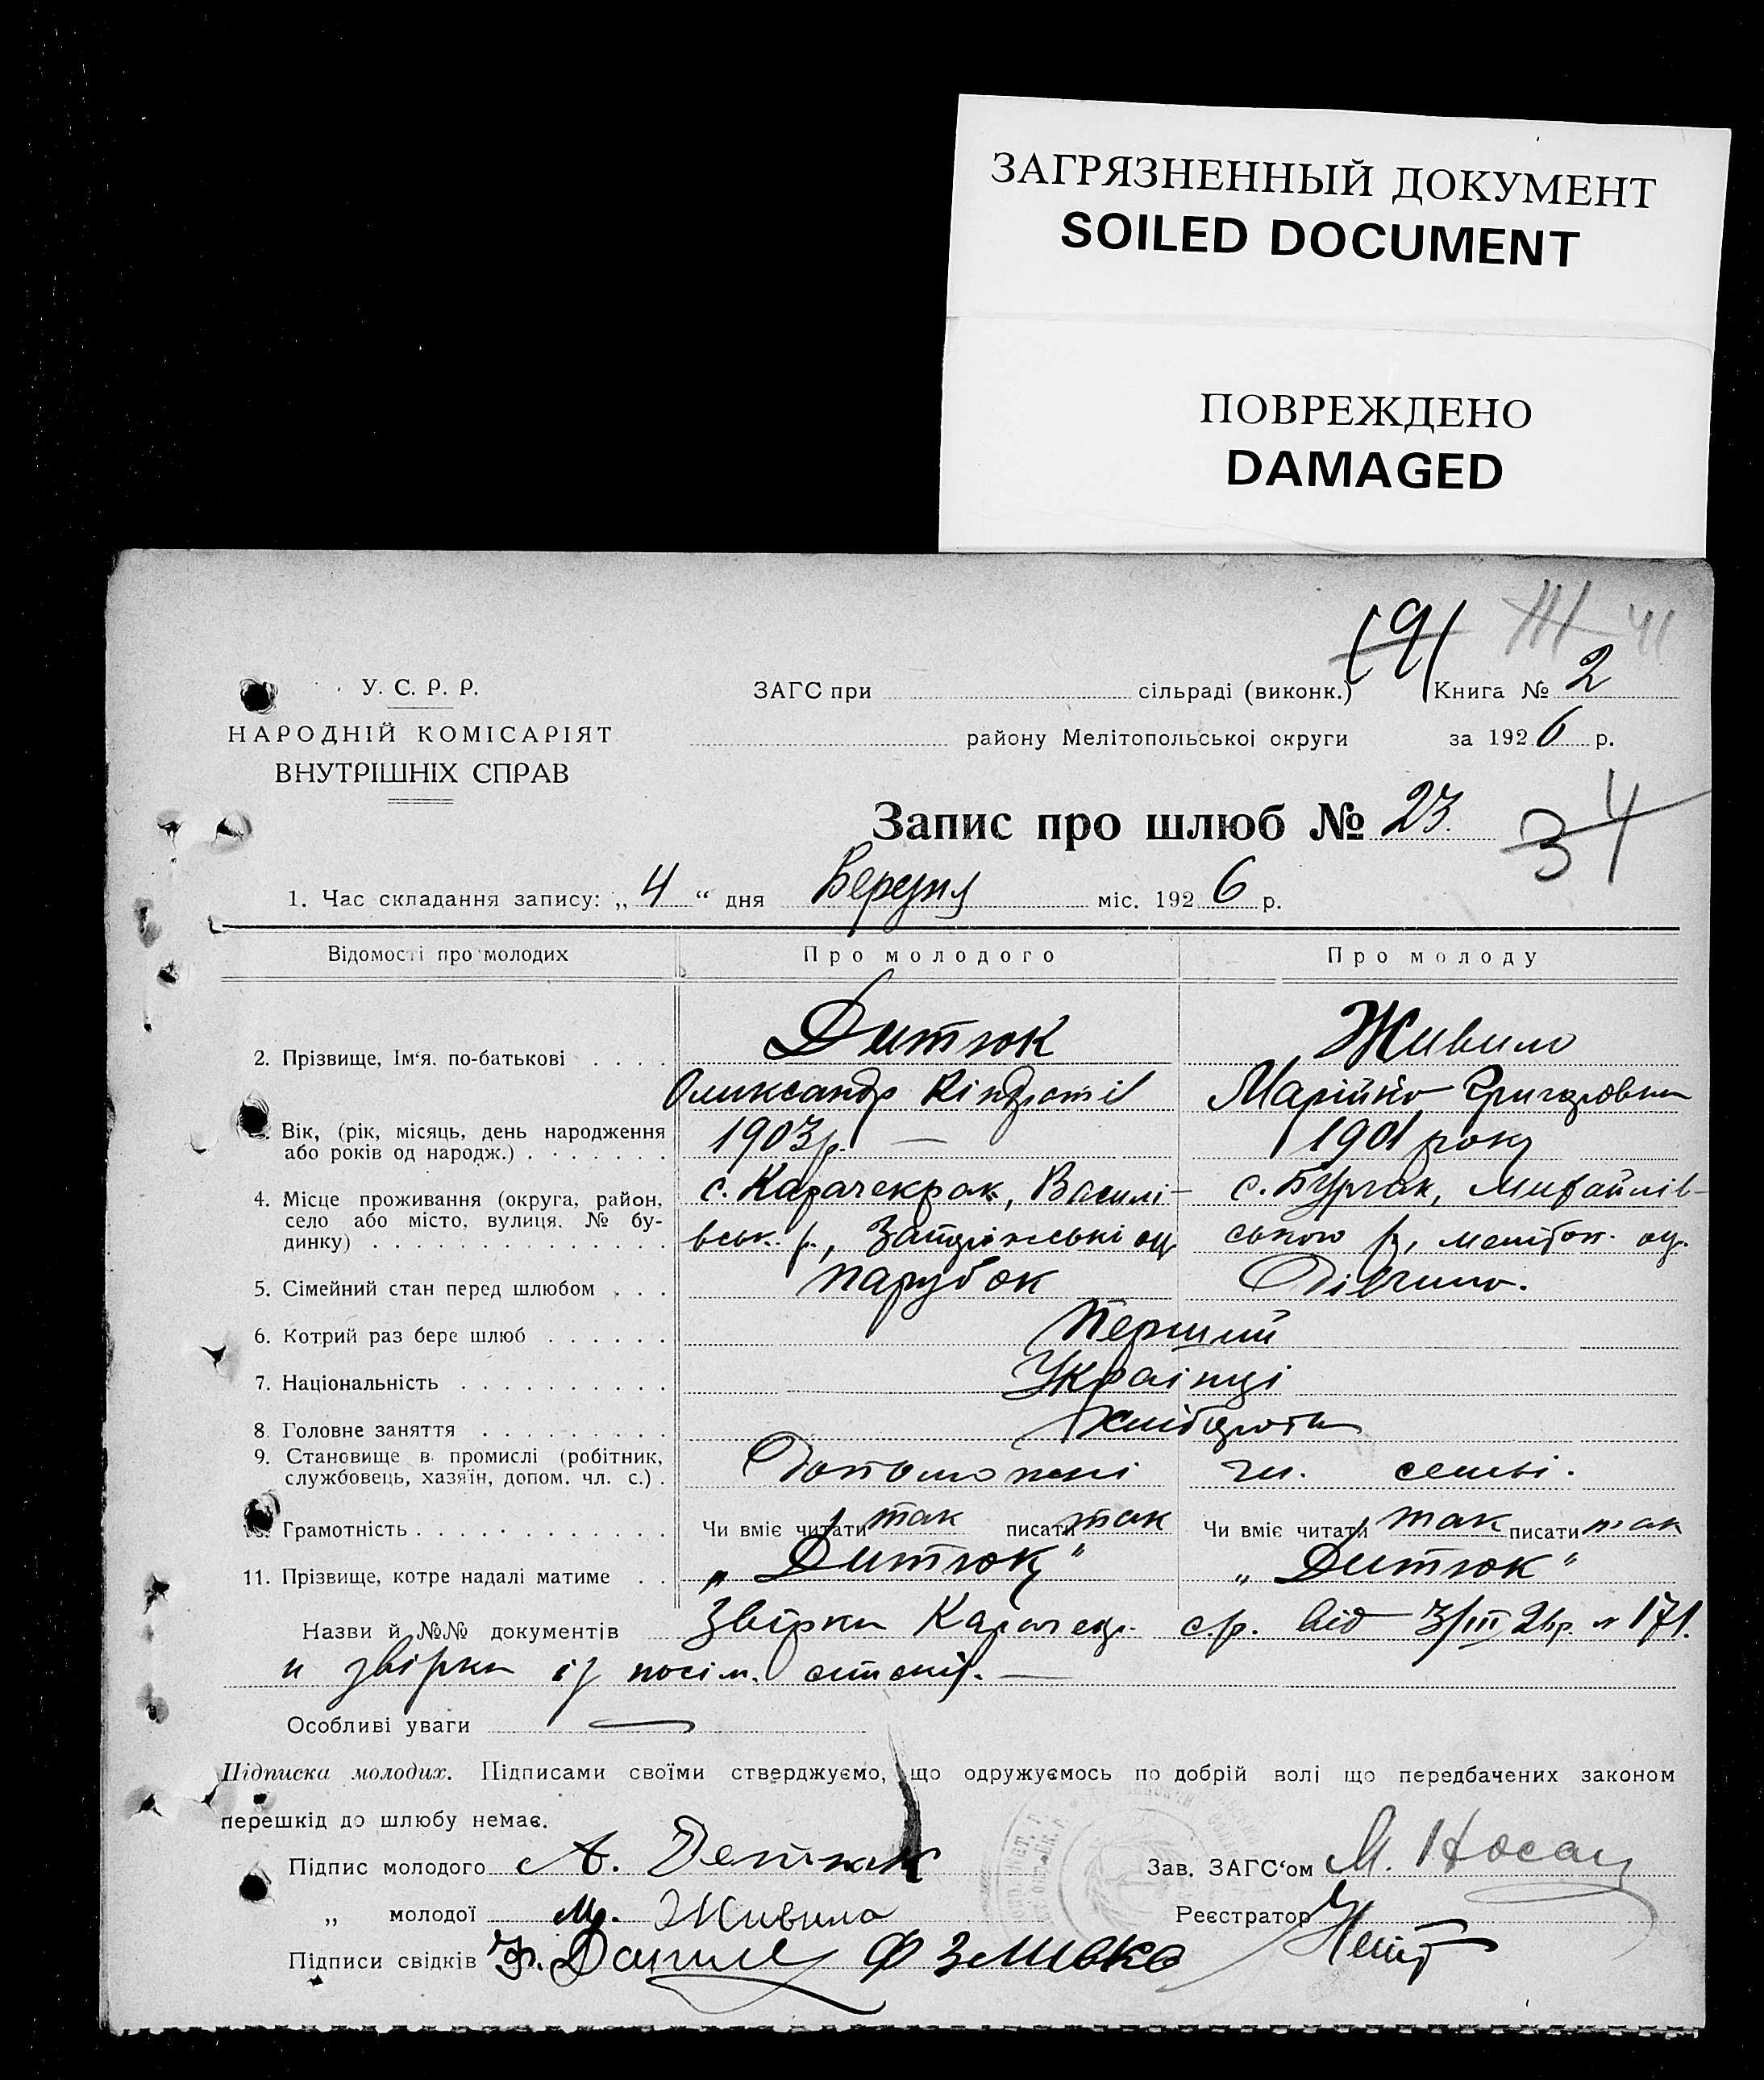 ЗАГРЯЗНЕННЫЙ ДОКУМЕНТ
SOILED DOCUMENT
ПОВРЕЖДЕНО
DAMAGED
У. С. Р. Р.
НАРОДНІЙ КОМІСАРІЯТ
ВНУТРІШНІХ СПРАВ
ЗАГС при сільраді (виконк.) Книга № 2
району Мелітопольської округи за 1926 р.
Запис про шлюб № 23.
34
1. Час складання запису: „4“ дня Березня міс. 1926 р.
Відомості про молодих Про молодого Про молоду
2. Прізвище, Ім‘я. по-батькові Дитюк Живило
Олександр Кіндратів Марійка Григоровна
Вік, (рік, місяць, день народження або років од народж.) 1903р. — 1901 року
4. Місце проживання (округа, район, село або місто, вулиця, № будинку) с. Карачекрак, Василі- с. Бурчак, Михайлів-
вськ. р., Запоріжські ок. ського р., меліток. ок.
5. Сімейний стан перед шлюбом парубок Дівчина.
6. Котрий раз бере шлюб Перший
7. Національність Українці
8. Головне заняття Хлібороби
9. Становище в промислі (робітник, службовець, хазяїн, допом. чл. с.) Допоможні чл. семьі.
Грамотність Чи вміє читати так писати так Чи вміє читати так писати так
11. Прізвище, котре надалі матиме „Дитюк“ „Дитюк“
Назви й №№ документів с.р. від 3/III 26р. № 171.
и із посім.
Особливі уваги —
Підписка молодих. Підписами своїми стверджуємо, що одружуємось по добрій волі що передбачених законом
перешкід до шлюбу немає.
Підпис молодого А. Зав. ЗАГС‘ом М. Носац
„ молодої М. Живила Реєстратор
Підписи свідків